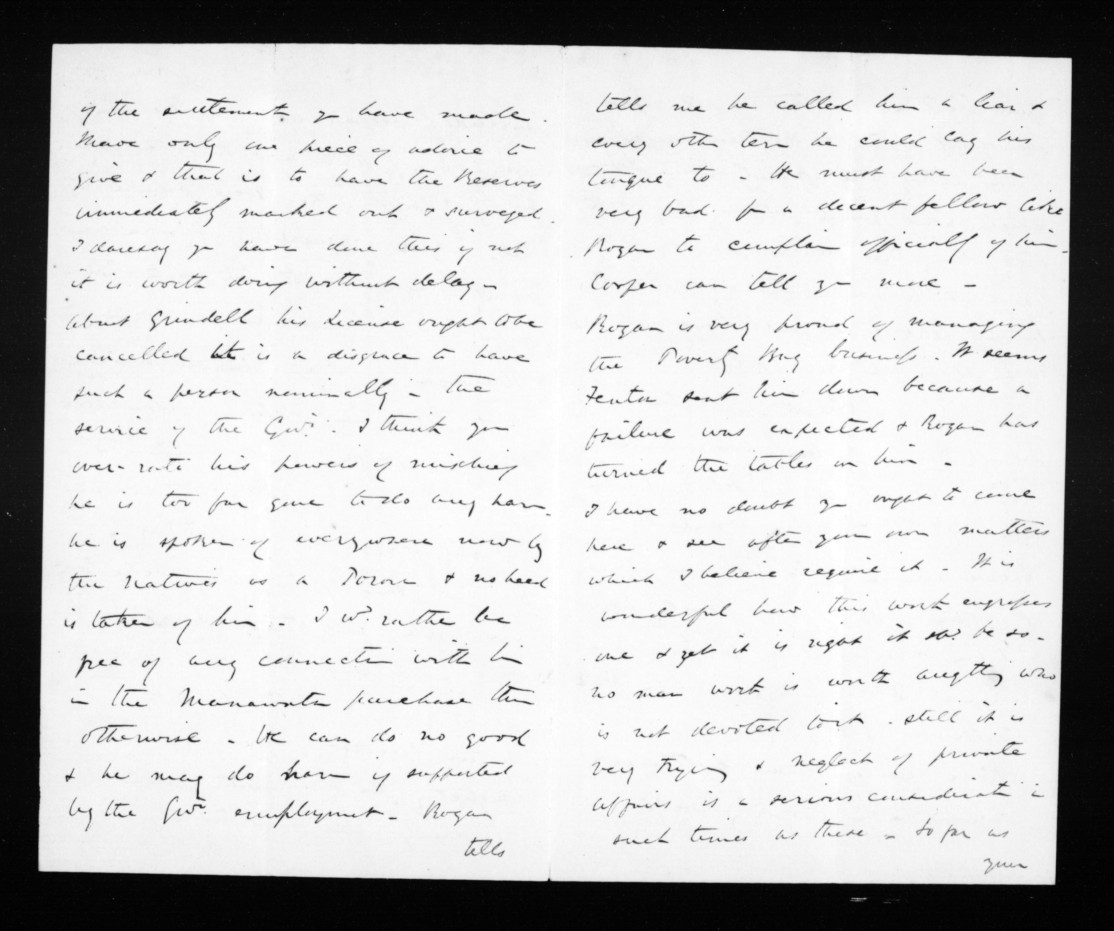 of the settlement yo have made.
I have only one piece of advice to
give & that is to have the Reserves
immediately marked out & surveyed.
I daresay yo have done this if not
it is worth doing without delay -
About Grindell his License ought to be
cancelled it is a disgrace to have
such a person nominally in the
service of the Govt. I think you
over-rate his powers of mischief
he is too far gone to do any harm.
he is spoken of everywhere now by
the natives as a & no heed
is taken of him - I wd. rather be
free of any connection with him
in the Manawatu purchase than
otherwise - He can do no good
& he may do harm if supported
by the Govt. employment - Rogan
tells
tells me he called him a liar &
every other term he could lay his
tongue to - He must have been
very bad for a decent fellow like
Rogan to complain officially of him -
Cooper can tell yo more -
Rogan is very proud of managing
the Poverty Bay business. It seems
Fenton sent him down because a
failure was expected & Rogan has
turned the tables on him -
I have no doubt yo ought to come
here & see after your own matters
which I believe require it - It is
wonderful how this work engrosses
one & yet it is right it shd. be so -
no man work is worth anything who
is not devoted to it. still it is
very trying & neglect of private
affairs is a serious consideration in
such times as these - So far as
your